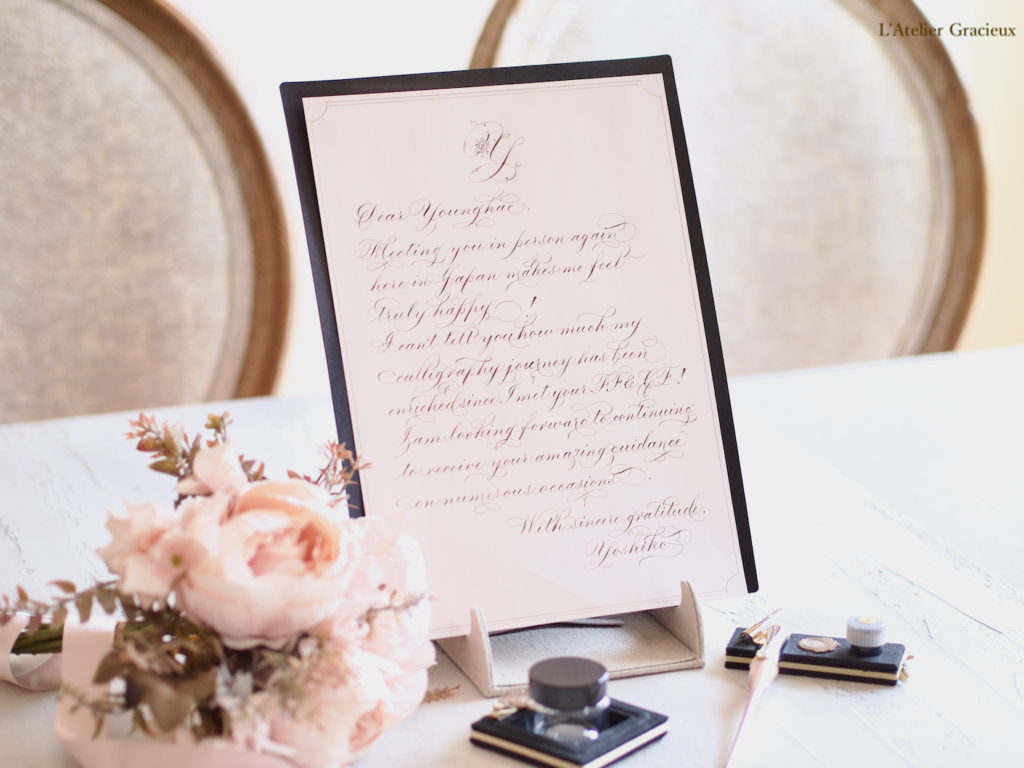 L'Atelier Gracieux
Y
Dear Younghae.
Meeting you in person again
here in Japan makes me feel
truly happy !
I can't tell you how much my
calligraphy journey has been
enriched since I met your
I am looking forward to continuing
to receive your amazing guidance
on numerous occasions.
With sincere gratitude,
Yoshiko